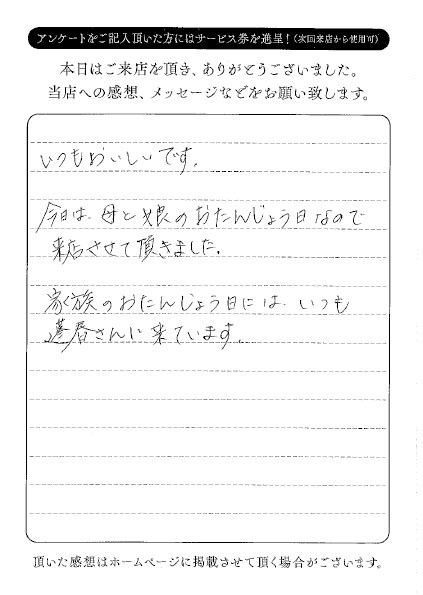 アンケートをご記入頂いた方にはサービス券を進呈！（次回来店から使用可）
本日はご来店を頂き、ありがとうございました。
当店への感想、メッセージなどをお願い致します。
いつもおいしいです。
今日は、母と娘のおたんじょう日なので
来店させて頂きました。
家族のおたんじょう日には、いつも
蓮春さんに来ています。
頂いた感想はホームページに掲載させて頂く場合がございます。